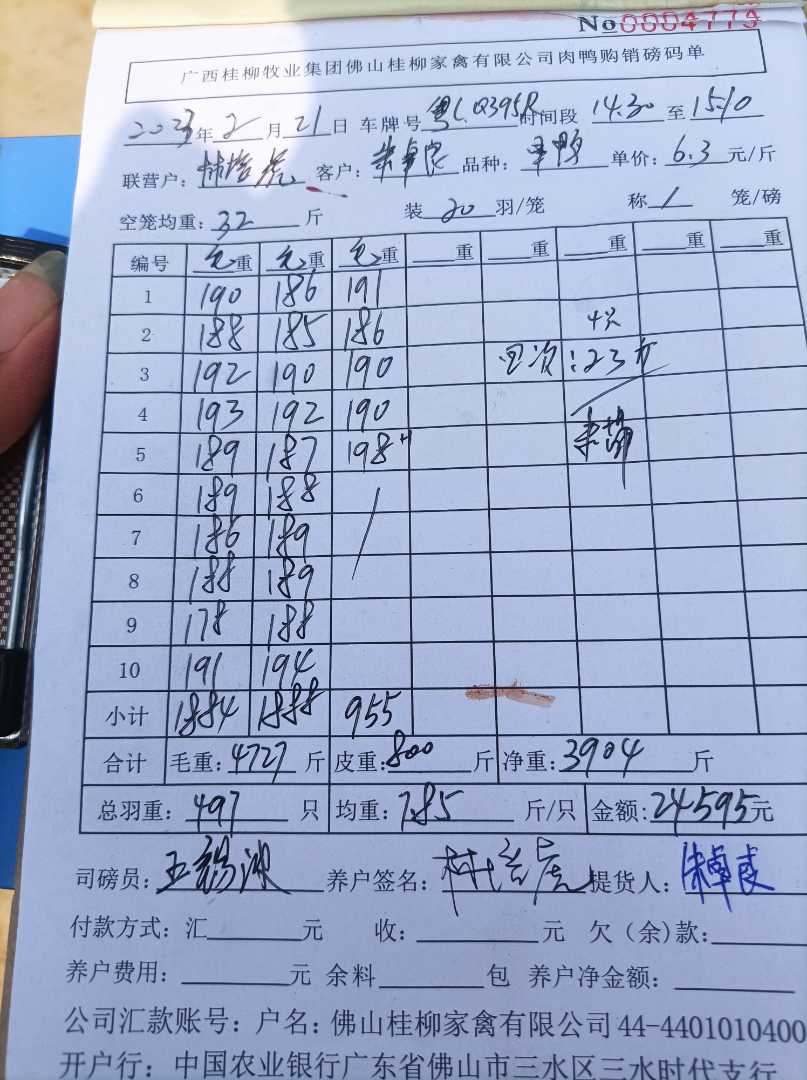 No 0004779
广西桂柳牧业集团佛山桂柳家禽有限公司肉鸭购销磅码单
2023年2月21日 车牌号 粤 Q395R 时间段 14.30 至 15.10
联营户: 客户: 朱卓良 品种: 鸭 单价: 6.3 元/斤
空笼均重: 32 斤 装 20 羽/笼 称 1 笼/磅
编号 毛重 毛重 毛重 重 重 重 重 重
1 190 186 191
2 188 185 186 4只
3 192 190 190 :23斤
4 193 192 190
5 189 187 198
6 189 188
7 186 189
8 188 189
9 178 188
10 191 194
小计 1884 1888 955
合计 毛重: 4727 斤 皮重: 800 斤 净重: 3904 斤
总羽重: 497 只 均重: 7.85 斤/只 金额: 24595元
司磅员: 养户签名: 提货人: 朱卓良
付款方式: 汇 元 收: 元 欠(余)款:
养户费用: 元 余料 包 养户净金额:
公司汇款账号: 户名: 佛山桂柳家禽有限公司 44-4401010400
开户行: 中国农业银行广东省佛山市三水区三水时代支行